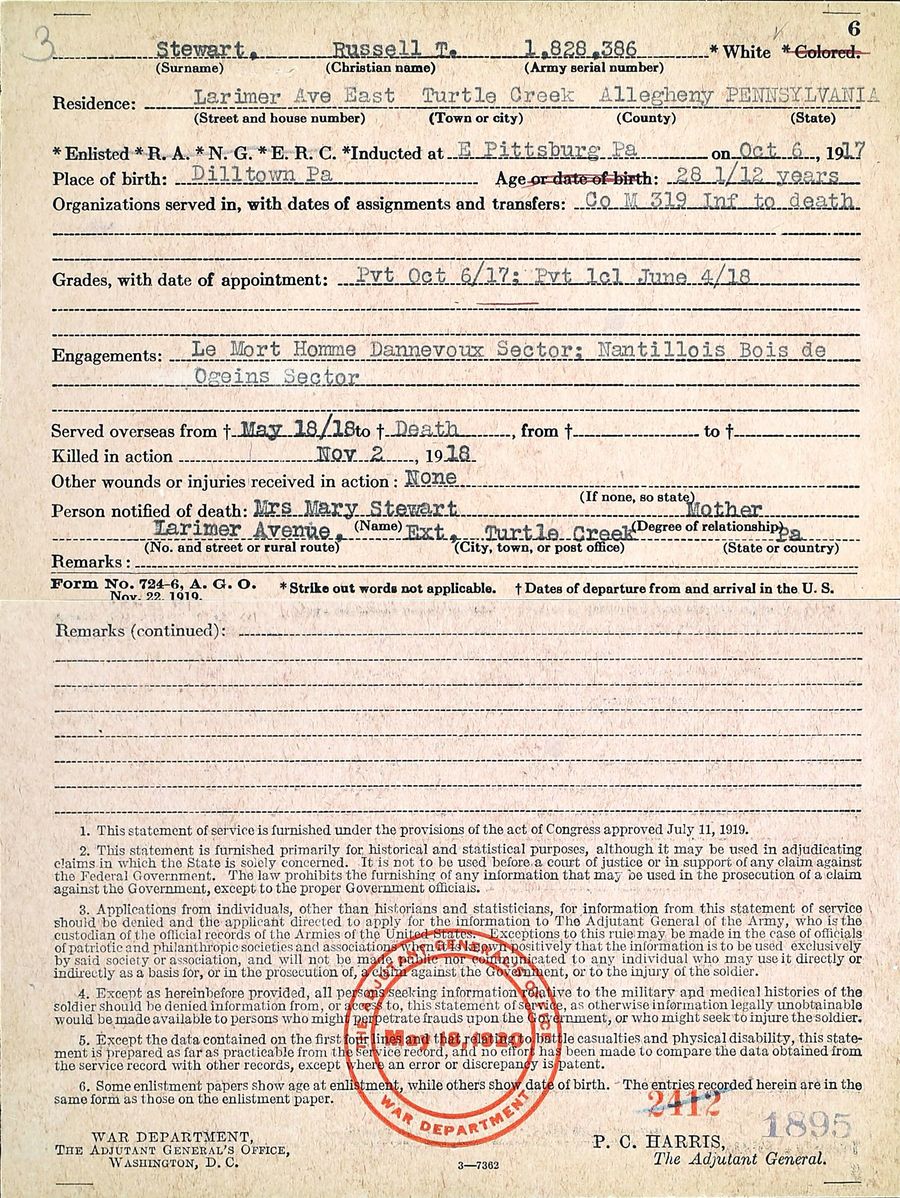 3
6
Stewart, Russell T. 1,828,386 * White * Colored.
(Surname) (Christian name) (Army serial number)
Residence: Larimer Ave East Turtle Creek Allegheny PENNSYLVANIA
(Street and house number) (Town or city) (County) (State)
* Enlisted * R. A. * N. G. * E. R. C. *Inducted at E Pittsburg Pa on Oct 6, 1917
Place of birth: Dilltown Pa Age or date of birth: 28 1/12 years
Organizations served in, with dates of assignments and transfers: Co M 319 Inf to death
Grades, with date of appointment: Pvt Oct 6/17; Pvt 1cl June 4/18
Engagements: Le Mort Homme Dannevoux Sector; Nantillois Bois de
Ogeins Sector
Served overseas from † May 18/18 to † Death, from † to †
Killed in action Nov 2, 1918
Other wounds or injuries received in action: None
(If none, so state)
Person notified of death: Mrs Mary Stewart Mother
(Name) (Degree of relationship)
Larimer Avenue, Ext, Turtle Creek Pa
(No. and street or rural route) (City, town, or post office) (State or country)
Remarks:
Form No. 724-6, A. G. O. *Strike out words not applicable. † Dates of departure from and arrival in the U. S.
Nov. 22, 1919.
Remarks (continued):
1. This statement of service is furnished under the provisions of the act of Congress approved July 11, 1919.
2. This statement is furnished primarily for historical and statistical purposes, although it may be used in adjudicating
claims in which the State is solely concerned. It is not to be used before a court of justice or in support of any claim against
the Federal Government. The law prohibits the furnishing of any information that may be used in the prosecution of a claim
against the Government, except to the proper Government officials.
3. Applications from individuals, other than historians and statisticians, for information from this statement of service
should be denied and the applicant directed to apply for the information to The Adjutant General of the Army, who is the
custodian of the official records of the Armies of the United States. Exceptions to this rule may be made in the case of officials
of patriotic and philanthropic societies and associations when it is shown positively that the information is to be used exclusively
by said society or association, and will not be made public nor communicated to any individual who may use it directly or
indirectly as a basis for, or in the prosecution of, a claim against the Government, or to the injury of the soldier.
4. Except as hereinbefore provided, all persons seeking information relative to the military and medical histories of the
soldier should be denied information from, or access to, this statement of service, as otherwise information legally unobtainable
would be made available to persons who might perpetrate frauds upon the Government, or who might seek to injure the soldier.
5. Except the data contained on the first four lines and that relating to battle casualties and physical disability, this state-
ment is prepared as far as practicable from the service record, and no effort has been made to compare the data obtained from
the service record with other records, except where an error or discrepancy is patent.
6. Some enlistment papers show age at enlistment, while others show date of birth. The entries recorded herein are in the
same form as those on the enlistment paper.
THE ADJUTANT GENERAL'S OFFICE
WAR DEPARTMENT
2412
1895
WAR DEPARTMENT,
THE ADJUTANT GENERAL'S OFFICE,
WASHINGTON, D. C.
3—7362
P. C. HARRIS,
The Adjutant General.